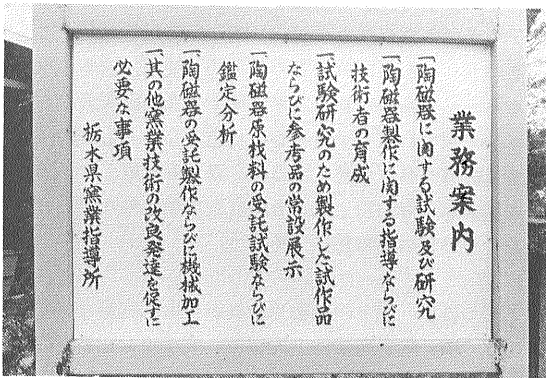 業務案内
一、陶磁器に関する試験及び研究
一、陶磁器製作に関する指導ならびに
技術者の育成
一、試験研究のため製作した試作品
ならびに参考品の常設展示
一、陶磁器原材料の受託試験ならびに
鑑定分析
一、陶磁器の受託製作ならびに機械加工
一、其の他窯業技術の改良発達を促すに
必要な事項
栃木県窯業指導所